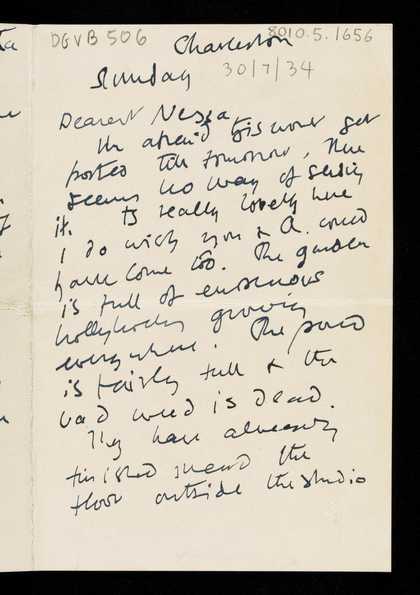 DGVB 506
8010.5.1656
Charleston
Sunday
30/7/34
Dearest Nessa
Im afraid this wont get
posted till tomorrow, there
seems no way of sending
it. Its really lovely here
I do wish you & A. could
have come too. The garden
is full of enormous
hollyhocks growing
everywhere. The pond
is fairly full & the
bad weed is dead.
They have already
finished the
floor outside the studio